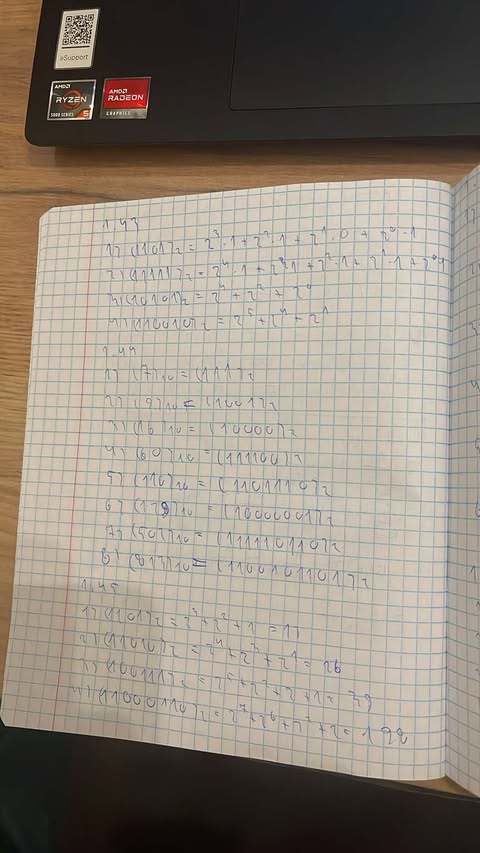 eSupport
AMD
RYZEN
5000 SERIES 5
AMD
RADEON
GRAPHICS
1.43
1) (1101)₂ = 2³·1 + 2²·1 + 2¹·0 + 2⁰·1
2) (11111)₂ = 2⁴·1 + 2³·1 + 2²·1 + 2¹·1 + 2⁰·1
3) (10101)₂ = 2⁴ + 2² + 2⁰
4) (110010)₂ = 2⁵ + 2⁴ + 2¹
1.44
1) (7)₁₀ = (111)₂
2) (9)₁₀ = (1001)₂
3) (16)₁₀ = (10000)₂
4) (60)₁₀ = (111100)₂
5) (110)₁₀ = (1101110)₂
6) (129)₁₀ = (10000001)₂
7) (501)₁₀ = (111110110)₂
8) (813)₁₀ = (1100101101)₂
1.45
1) (1101)₂ = 2³ + 2² + 1 =
2) (11010)₂ = 2⁴ + 2³ + 2¹ = 26
3) (100111)₂ = 2⁵ + 2² + 2 + 1 = 39
4) (11000110)₂ = 2⁷ + 2⁶ + 2² + 2 = 198